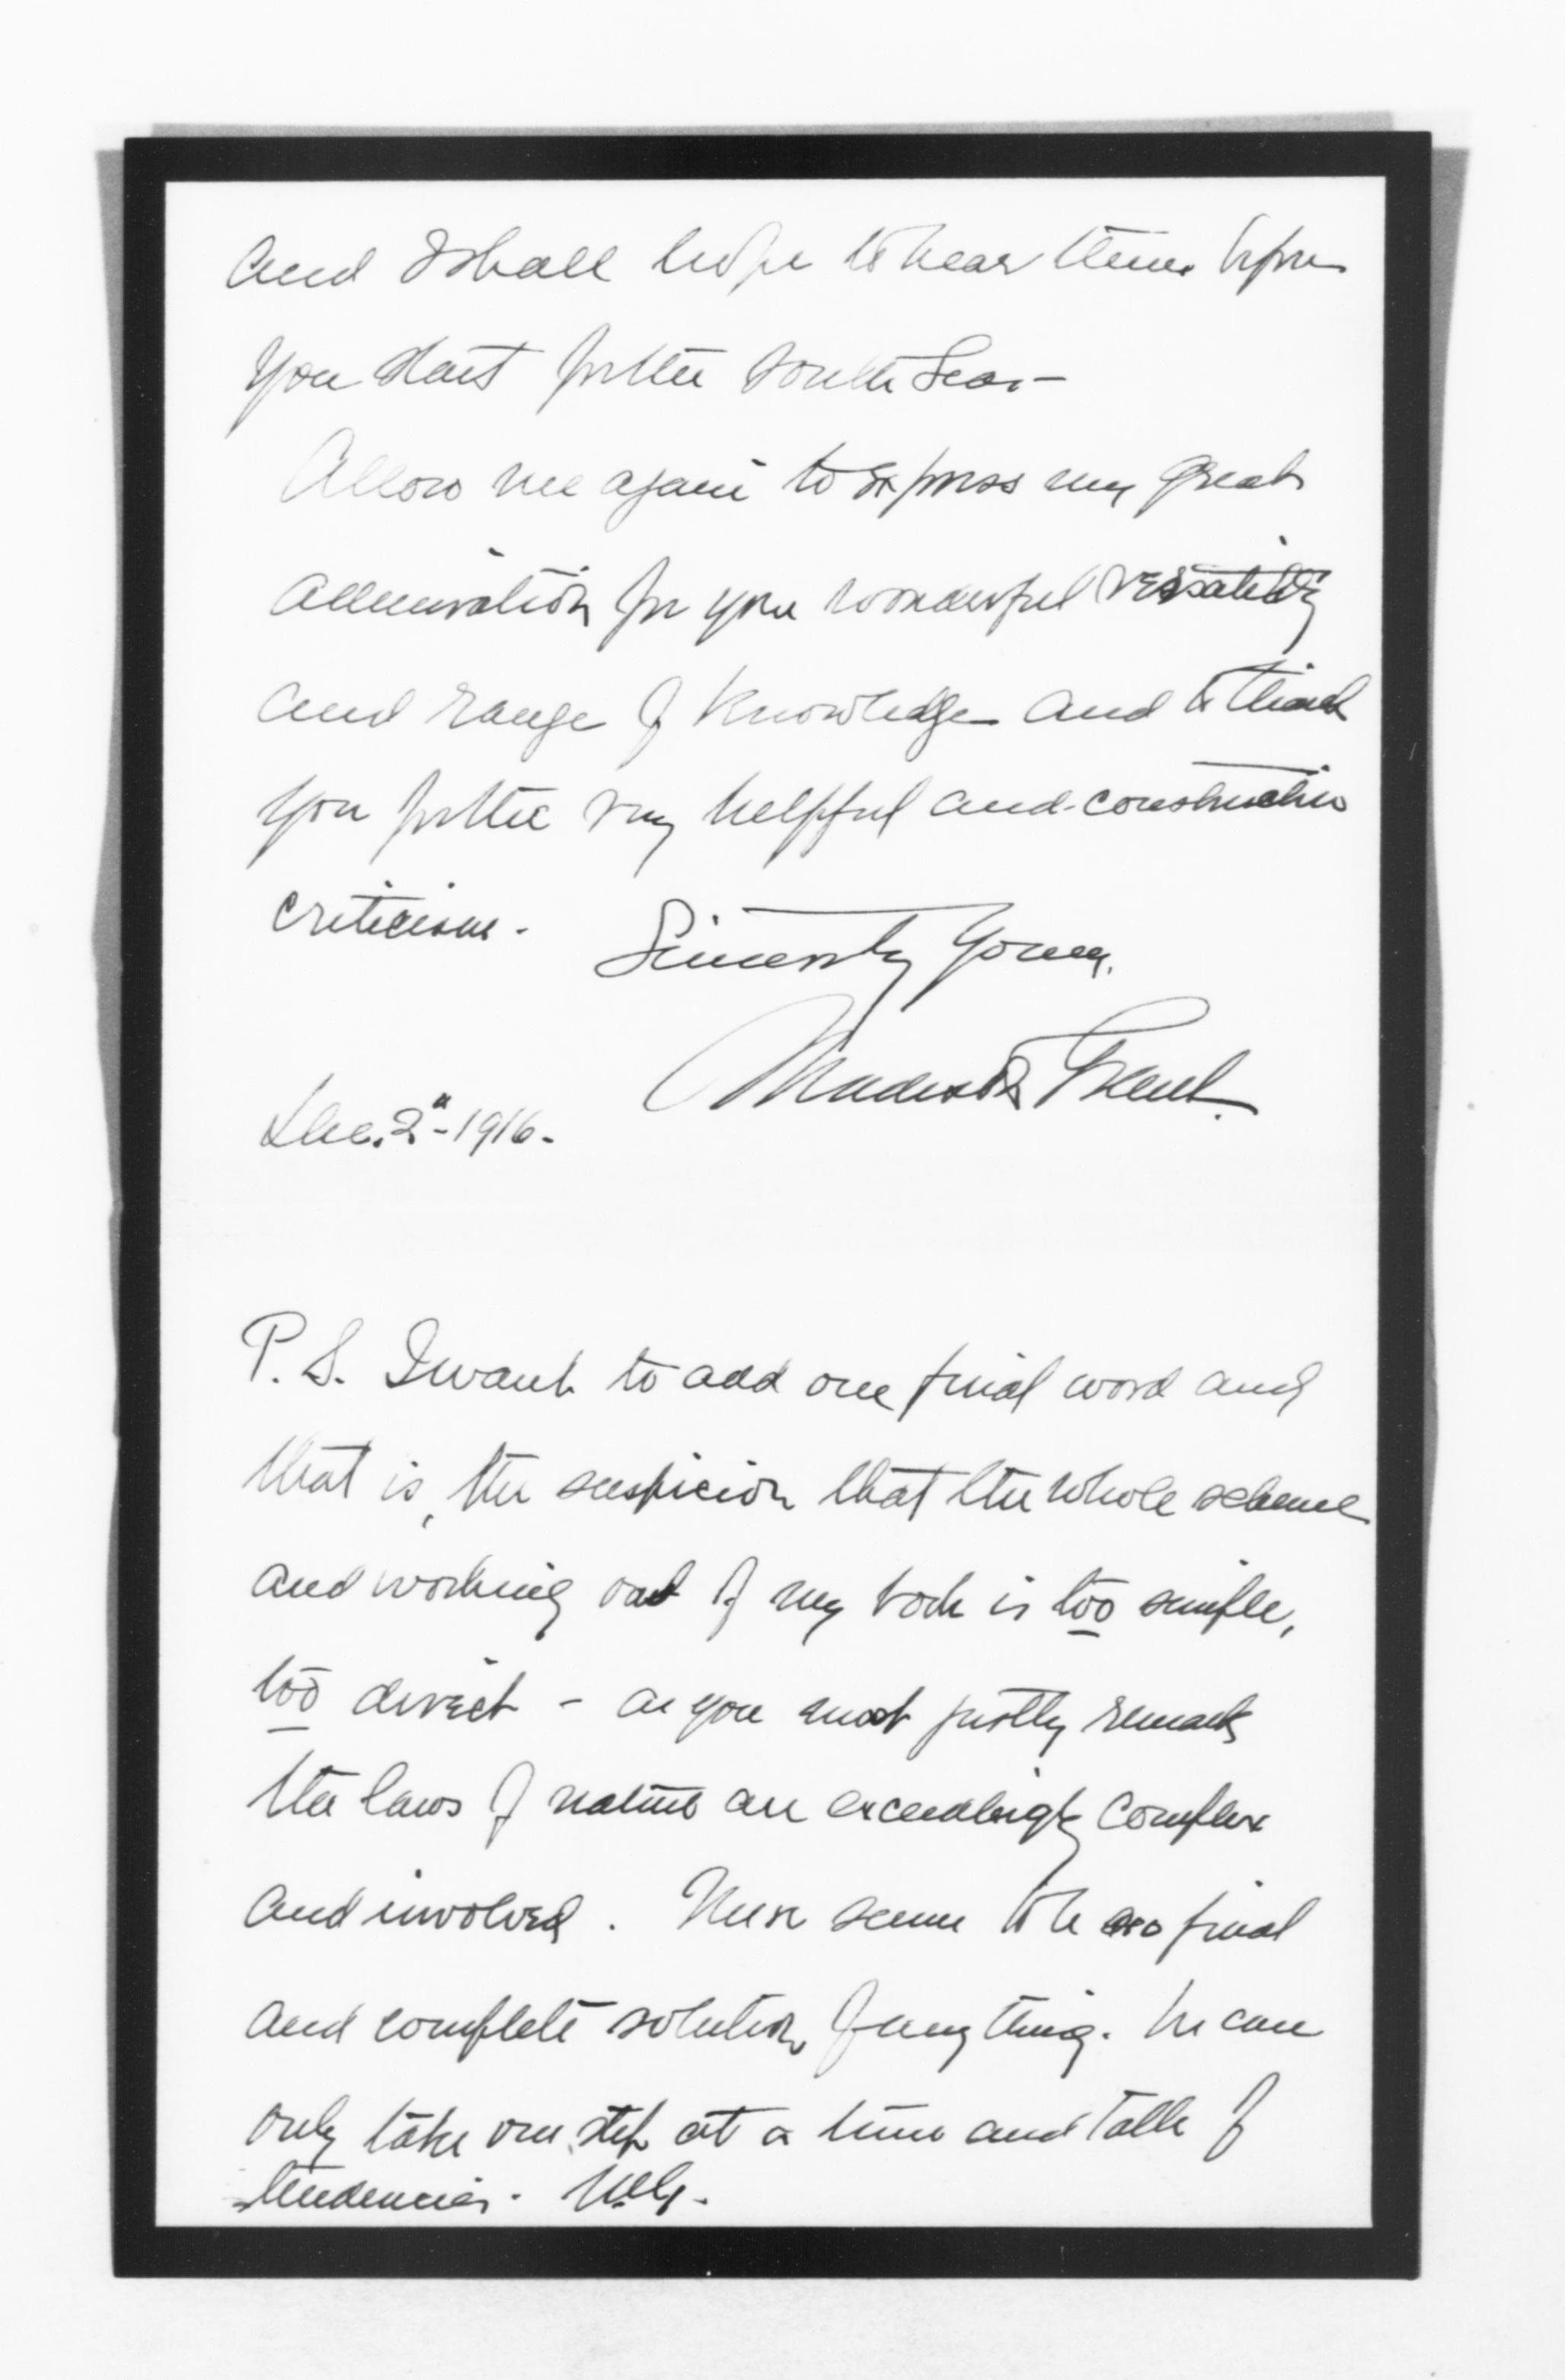 and I shall hope to hear them before
you start for the South Seas—
Allow me again to express my great
admiration for your wonderful versatility
and range of knowledge and to thank
you for the very helpful and constructive
criticism.
Sincerely Yours,
Madison Grant.
Dec. 2" - 1916.
P. S. I want to add one final word and
that is, the suspicion that the whole scheme
and working out of my book is too simple,
too direct - as you most justly remark
the laws of nature are exceedingly complex
and involved. There seems to be no final
and complete solution of any thing. We can
only take one step at a time and talk of
tendencies. M.G.